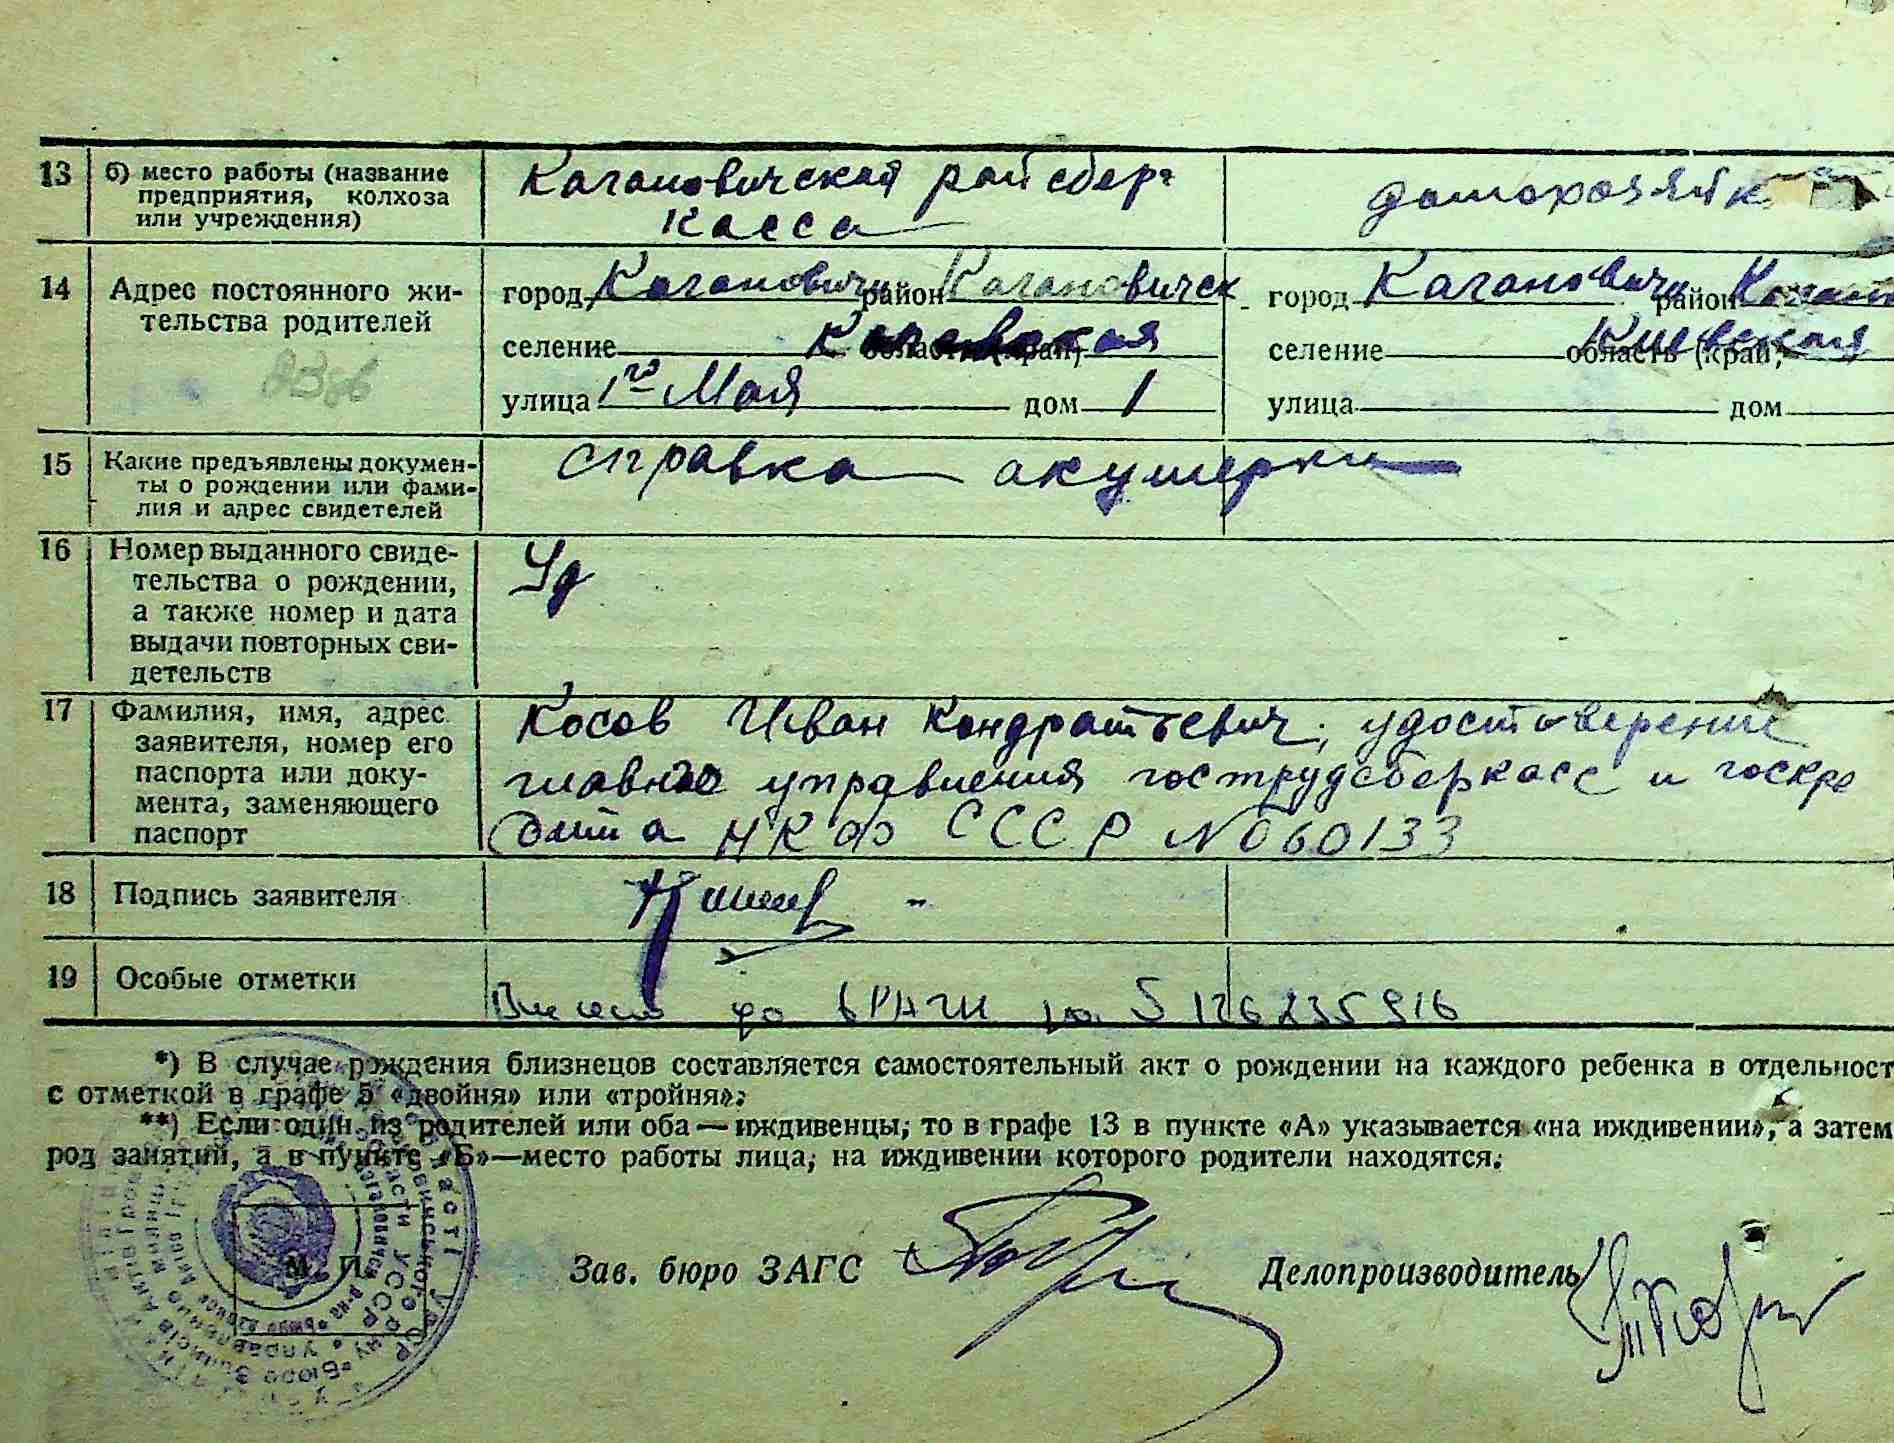 13 б) место работы (название предприятия, колхоза или учреждения)
Кагановичская райсбер
касса
домохозяйк
14 Адрес постоянного жительства родителей
город Кагановичи район Кагановичск
селение область (край)
улица 1го Мая дом 1
город Кагановичи район Каган
селение Киевская область (край)
улица дом
15 Какие предъявлены документы о рождении или фамилия и адрес свидетелей
справка акушерки
16 Номер выданного свидетельства о рождении, а также номер и дата выдачи повторных свидетельств
17 Фамилия, имя, адрес заявителя, номер его паспорта или документа, заменяющего паспорт
Косов Иван Кондратьевич, удостоверение
главного управления гострудсберкасс и госкре
дита НКФ СССР № 060133
18 Подпись заявителя
19 Особые отметки
Внесено до ДРАЦС за 5126235916
*) В случае рождения близнецов составляется самостоятельный акт о рождении на каждого ребенка в отдельност
с отметкой в графе 5 «двойня» или «тройня».
**) Если один из родителей или оба — иждивенцы, то в графе 13 в пункте «А» указывается «на иждивении», а затем
род занятий, а в пункте «Б»—место работы лица, на иждивении которого родители находятся.
М. П.
Зав. бюро ЗАГС
Делопроизводитель